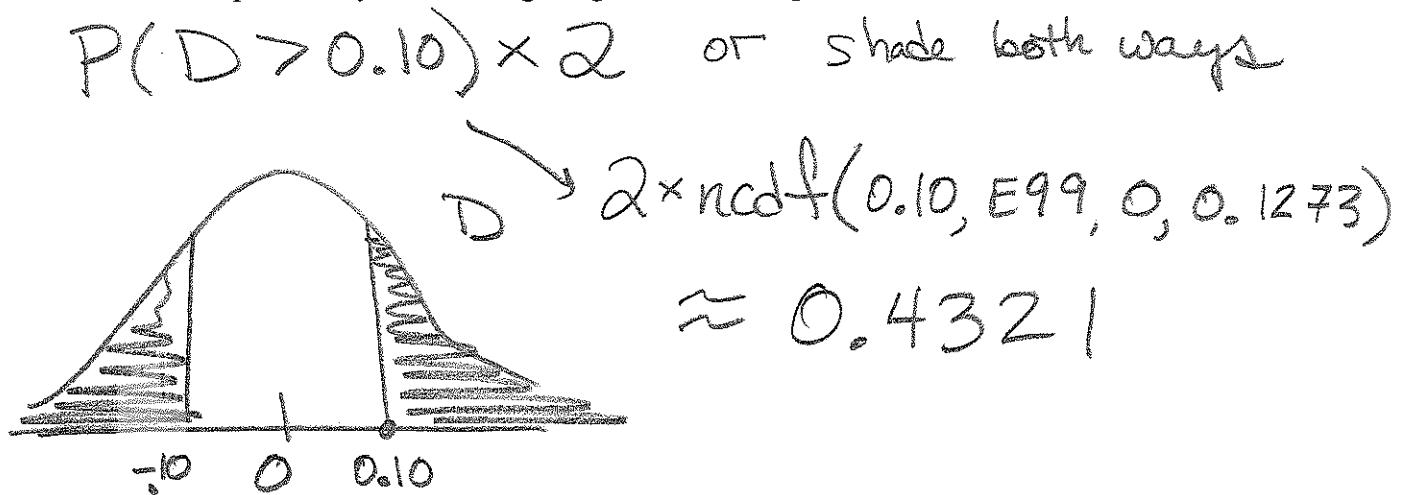 P(D > 0.10) × 2 or shade both ways
D
2×ncdf(0.10, E99, 0, 0.1273)
≈ 0.4321
-.10 0 0.10